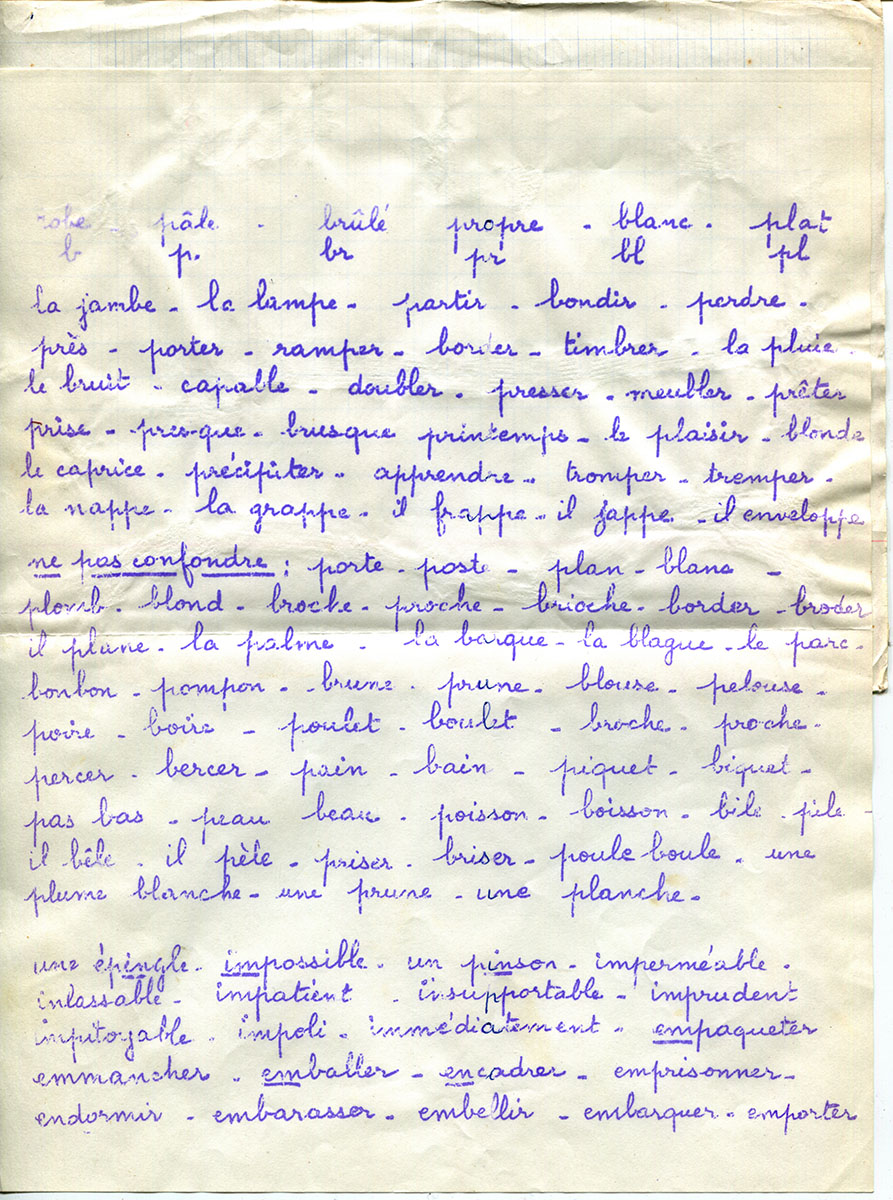 robe - pâle - brûlé propre - blanc - plat
b p. br pr bl pl
la jambe - la lampe - partir - bondir - perdre -
près - porter - ramper - border - timbrer - la pluie -
le bruit - capable - doubler - presser - meubler - prêter
prise - presque - brusque printemps - le plaisir - blonde
le caprice - précipiter - apprendre - tromper - tremper -
la nappe - la grappe - il frappe - il jappe - il enveloppe
ne pas confondre : porte - poste - plan - blanc -
plomb - blond - broche - proche - brioche - border - broder
il plane - la palme - la barque - la blague - le parc -
bonbon - pompon - brune - prune - blouse - pelouse -
poire - boire - poulet - boulet - broche - proche -
percer - bercer - pain - bain - piquet - biquet -
pas bas - peau beau - poisson - boisson - bile - pile -
il bêle - il pèle - priser - briser - poule boule - une
plume blanche - une prune - une planche -
une épingle - impossible - un pinson - imperméable -
inlassable - impatient - insupportable - imprudent
impitoyable - impoli - immédiatement - empaqueter
emmancher - emballer - encadrer - emprisonner -
endormir - embarasser - embellir - embarquer - emporter